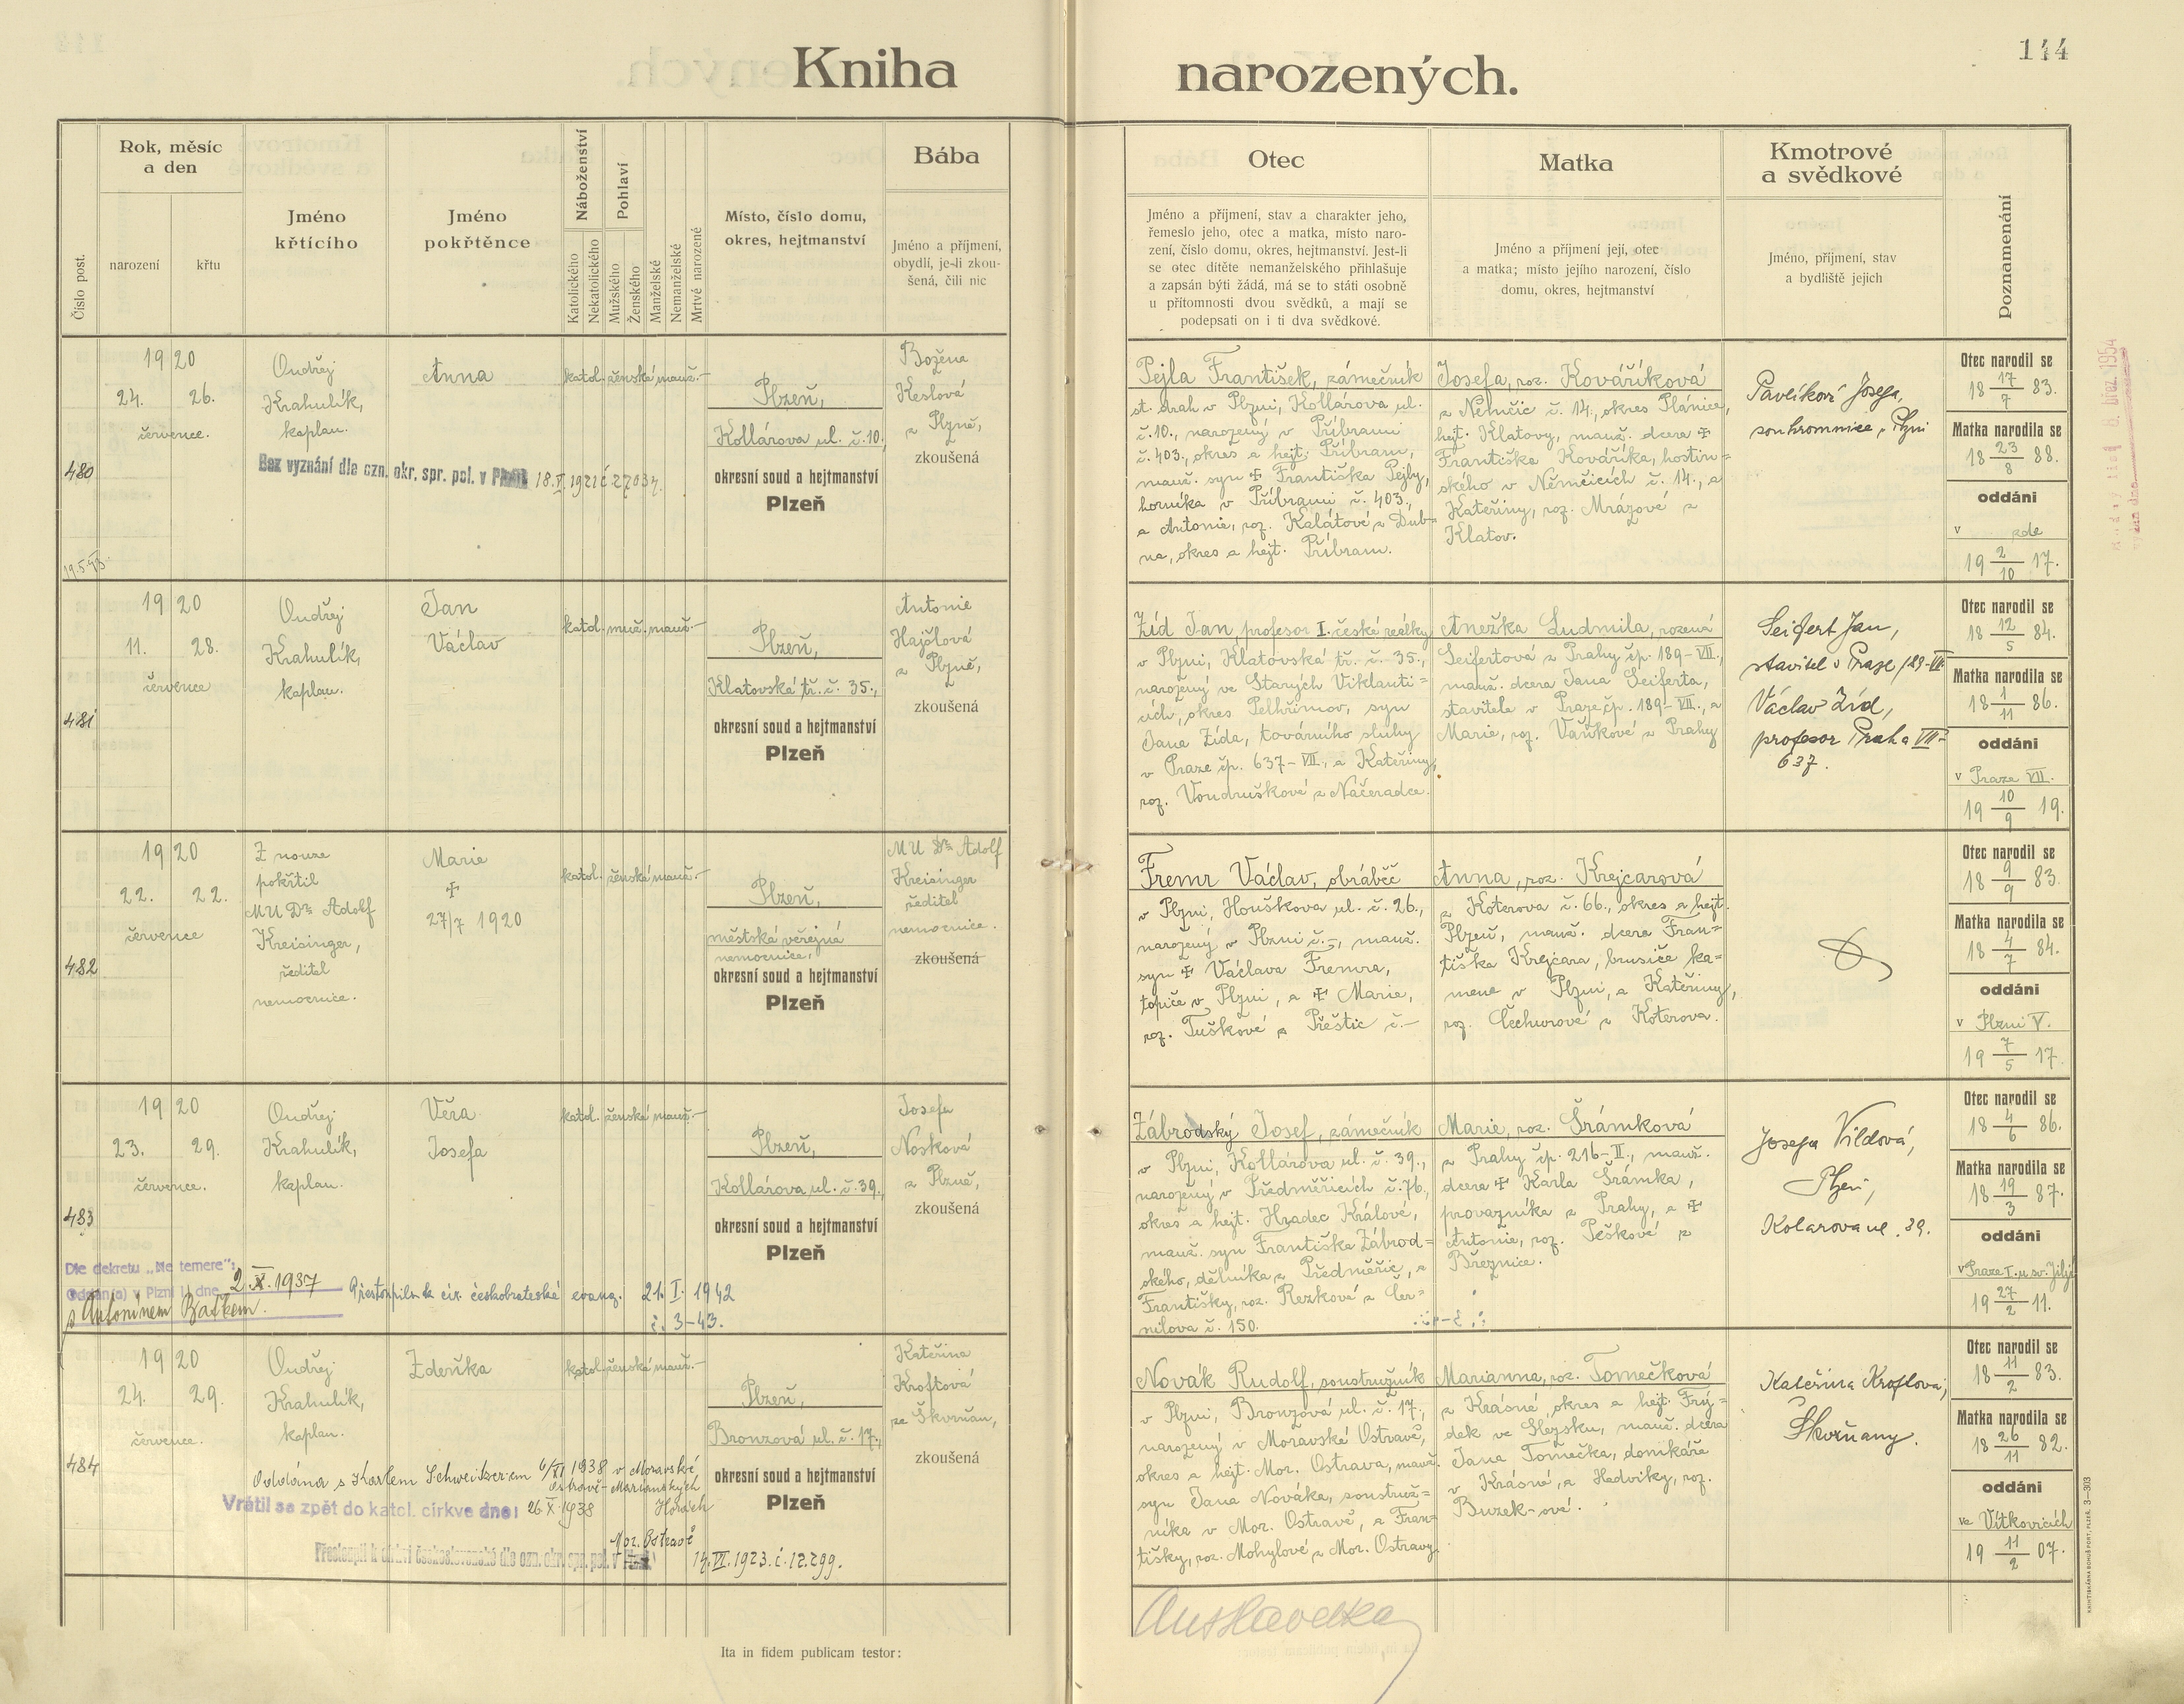 Kniha narozených.
144
Číslo post.
Rok, měsíc
a den
narození
křtu
Jméno
křtícího
Jméno
pokřtěnce
Náboženství
Katolického
Nekatolického
Pohlaví
Mužského
Ženského
Manželské
Nemanželské
Mrtvé narozené
Místo, číslo domu,
okres, hejtmanství
Bába
Jméno a příjmení,
obydlí, je-li zkou-
šená, čili nic
Otec
Jméno a příjmení, stav a charakter jeho,
řemeslo jeho, otec a matka, místo naro-
zení, číslo domu, okres, hejtmanství. Jest-li
se otec dítěte nemanželského přihlašuje
a zapsán býti žádá, má se to státi osobně
u přítomnosti dvou svědků, a mají se
podepsati on i ti dva svědkové.
Matka
Jméno a příjmení její, otec
a matka; místo jejího narození, číslo
domu, okres, hejtmanství
Kmotrové
a svědkové
Jméno, příjmení, stav
a bydliště jejich
Poznamenání
480
1920
24. 26.
července.
Ondřej
Krahulík,
kaplan.
Anna
katol. ženské manž.
Plzeň,
Kollárova ul. č. 10,
okresní soud a hejtmanství
Plzeň
Božena
Keslová
z Plzně,
zkoušená
Bez vyznání dle ozn. okr. spr. pol. v Plzni 18.V. 1921 č 27037.
Pejla František, zámečník
st. drah v Plzni, Kollárova ul.
č. 10., narozený v Příbrami
č. 403., okres a hejt. Příbram,
manž. syn ✝ Františka Pejly,
horníka v Příbrami č. 403.,
a Antonie, roz. Kalátové z Dub-
na, okres a hejt. Příbram.
Josefa, roz. Kováříková
z Němčic č. 14., okres Plánice,
hejt. Klatovy, manž. dcera ✝
Františka Kováříka, hostin=
ského v Němčicích č. 14., a
Kateřiny, roz. Mrázové z
Klatov.
Pavlíková Josefa,
soukromnice, Plzni
Otec narodil se
18 17/7 83.
Matka narodila se
18 23/8 88.
oddáni
v zde
19 2/10 17.
481
1920
11. 28.
července
Ondřej
Krahulík,
kaplan.
Jan
Václav
katol. muž. manž.
Plzeň,
Klatovská tř. č. 35.,
okresní soud a hejtmanství
Plzeň
Antonie
Hajšlová
z Plzně,
zkoušená
Zíd Jan, profesor I. české reálky
v Plzni, Klatovská tř. č. 35.,
narozený ve Starých Viklanti=
cích, okres Pelhřimov, syn
Jana Zída, továrního sluhy
v Praze čp. 637-VII., a Kateřiny,
roz. Vondruškové z Načeradce.
Anežka Ludmila, rozená
Seifertová z Prahy čp. 189-VII.,
manž. dcera Jana Seiferta,
stavitele v Praze čp. 189-VII., a
Marie, roz. Vaňkové z Prahy
Seifert Jan,
stavitel v Praze 189-VII
Václav Zíd,
profesor Praha VII-
637.
Otec narodil se
18 12/5 84.
Matka narodila se
18 1/11 86.
oddáni
v Praze VII.
19 10/9 19.
482
1920
22. 22.
července
Z nouze
pokřtil
MUDr. Adolf
Kreisinger,
ředitel
nemocnice.
Marie
✝
27/7 1920
katol. ženské manž.
Plzeň,
městská veřejná
nemocnice,
okresní soud a hejtmanství
Plzeň
MUDr. Adolf
Kreisinger
ředitel
nemocnice.
zkoušená
Fremr Václav, obráběč
v Plzni, Houškova ul. č. 26.,
narozený v Plzni č.-, manž.
syn ✝ Václava Fremra,
topiče v Plzni, a ✝ Marie,
roz. Tuškové z Přeštic č.-
Anna, roz. Krejcarová
z Koterova č. 66., okres a hejt.
Plzeň, manž. dcera Fran=
tiška Krejcara, brusiče ka=
mene v Plzni, a Kateřiny,
roz. Čechurové z Koterova.
Otec narodil se
18 9/9 83.
Matka narodila se
18 4/7 84.
oddáni
v Plzni V.
19 7/5 17.
483
1920
23. 29.
července.
Ondřej
Krahulík,
kaplan.
Věra
Josefa
katol. ženské manž.
Plzeň,
Kollárova ul. č. 39.,
okresní soud a hejtmanství
Plzeň
Josefa
Nosková
z Plzně,
zkoušená
Dle dekretu „Ne temere":
Oddán(a) v Plzni dne 2.X.1937
s Antonínem Baťkem.
Přestoupila k cír. českobratrské evang. 21. I. 1942
č. 3-43.
Zábrodský Josef, zámečník
v Plzni, Kollárova ul. č. 39.,
narozený v Předměřicích č. 76.,
okres a hejt. Hradec Králové,
manž. syn Františka Zábrod=
ského, dělníka z Předměřic, a
Františky, roz. Rezkové z Čer=
nilova č. 150.
Marie, roz. Šrámková
z Prahy čp. 216-II., manž.
dcera ✝ Karla Šrámka,
provazníka z Prahy, a ✝
Antonie, roz. Peškové z
Březnice.
Josefa Vildová,
Plzeň,
Kolarova ul. 39.
Otec narodil se
18 4/6 86.
Matka narodila se
18 19/3 87.
oddáni
v Praze I. u sv. Jiljí
19 27/2 11.
484
1920
24. 29.
července.
Ondřej
Krahulík,
kaplan.
Zdeňka
katol. ženské manž.
Plzeň,
Bronzová ul. č. 17.,
okresní soud a hejtmanství
Plzeň
Kateřina
Kroftová
ze Škvrňan,
zkoušená
Oddána s Karlem Schweitzerem 6/XI 1938 v Moravské
Ostravě-Mariánských
Horách
Vrátil se zpět do katol. církve dne: 26.X.1938
Mor. Ostravě
Přestoupil k církvi československé dle ozn. okr. spr. pol. v Plzni 14.VI.1923.č.12.299.
Novák Rudolf, soustružník
v Plzni, Bronzová ul. č. 17.,
narozený v Moravské Ostravě,
okres a hejt. Mor. Ostrava, manž.
syn Jana Nováka, soustruž=
níka v Mor. Ostravě, a Fran=
tišky, roz. Mohylové z Mor. Ostravy.
Marianna, roz. Tomečková
z Krásné, okres a hejt. Frý=
dek ve Slezsku, manž. dcera
Jana Tomečka, domkáře
v Krásné, a Hedviky, roz.
Buzek-ové.
Kateřina Kroftova,
Škvrňany.
Otec narodil se
18 11/2 83.
Matka narodila se
18 26/11 82.
oddáni
ve Vítkovicích
19 11/2 07.
Ita in fidem publicam testor:
KNIHTISKÁRNA BOHUŠ PORT, PLZEŇ. 3—303